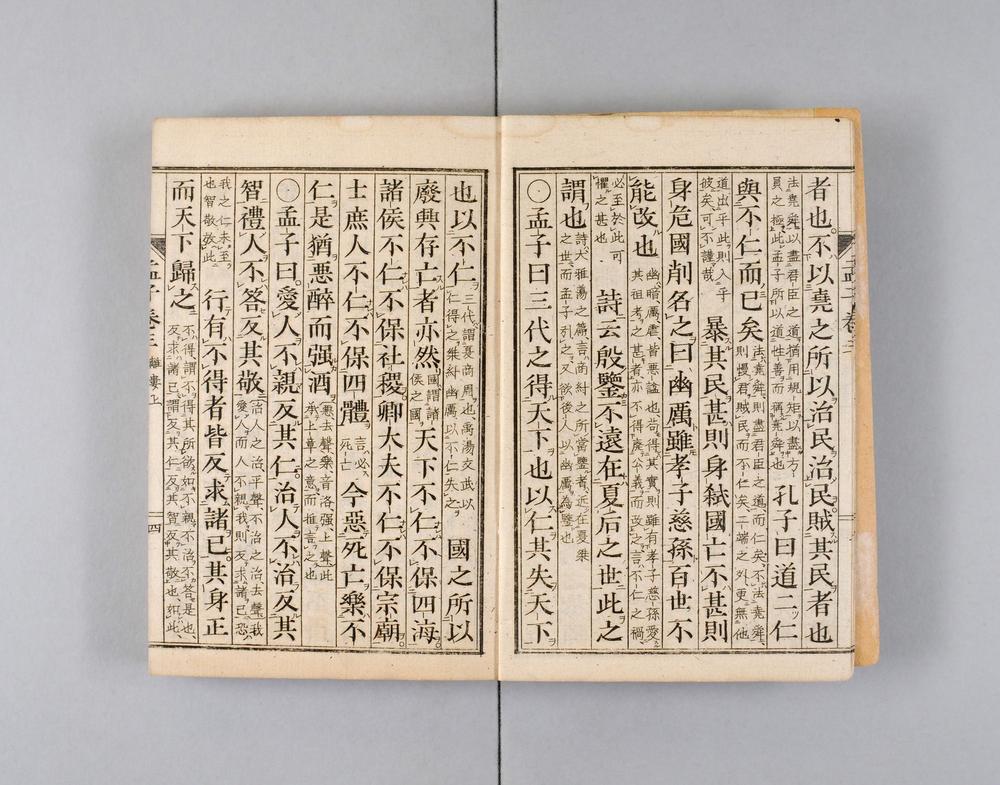 者也不以堯之所以治民治民賊其民者也
法堯舜以盡君臣之道猶用規矩以盡方員之極此孟子所以道性善而稱堯舜也孔子曰道二仁
與不仁而已矣法堯舜則盡君臣之道而仁矣不法堯舜則慢君賊民而不仁矣二端之外更無他
道出乎此則入乎彼矣可不謹哉暴其民甚則身弑國亡不甚則
身危國削名之曰幽厲雖孝子慈孫百世不
能改也幽暗厲虐皆惡謚也苟得其實則雖有孝子慈孫愛其祖考之甚者亦不得廢公義而改之言不仁之禍
必至於此可懼之甚也詩云殷鑒不遠在夏后之世此之
謂也詩大雅蕩之篇言商紂之所當鑒者近在夏桀之世而孟子引之又欲後人以幽厲為鑒也
〇孟子曰三代之得天下也以仁其失天下
也以不仁三代謂夏商周也禹湯文武以仁得之桀紂幽厲以不仁失之國之所以
廢興存亡者亦然國謂諸侯之國天下不仁不保四海
諸侯不仁不保社稷卿大夫不仁不保宗廟
士庶人不仁不保四體言必死亡今惡死亡樂不
仁是猶惡醉而强酒惡去聲樂音洛强上聲此承上章之意而推言之也
〇孟子曰愛人不親反其仁治人不治反其
智禮人不答反其敬治人之治平聲不治之治去聲我愛人而人不親我則反求諸已恐
我之仁未至也智敬放此行有不得者皆反求諸已其身正
而天下歸之不得謂不得其所欲如不親不治不答是也反求諸已謂反其仁反其智反其敬也如此
孟子卷三 離婁上 四